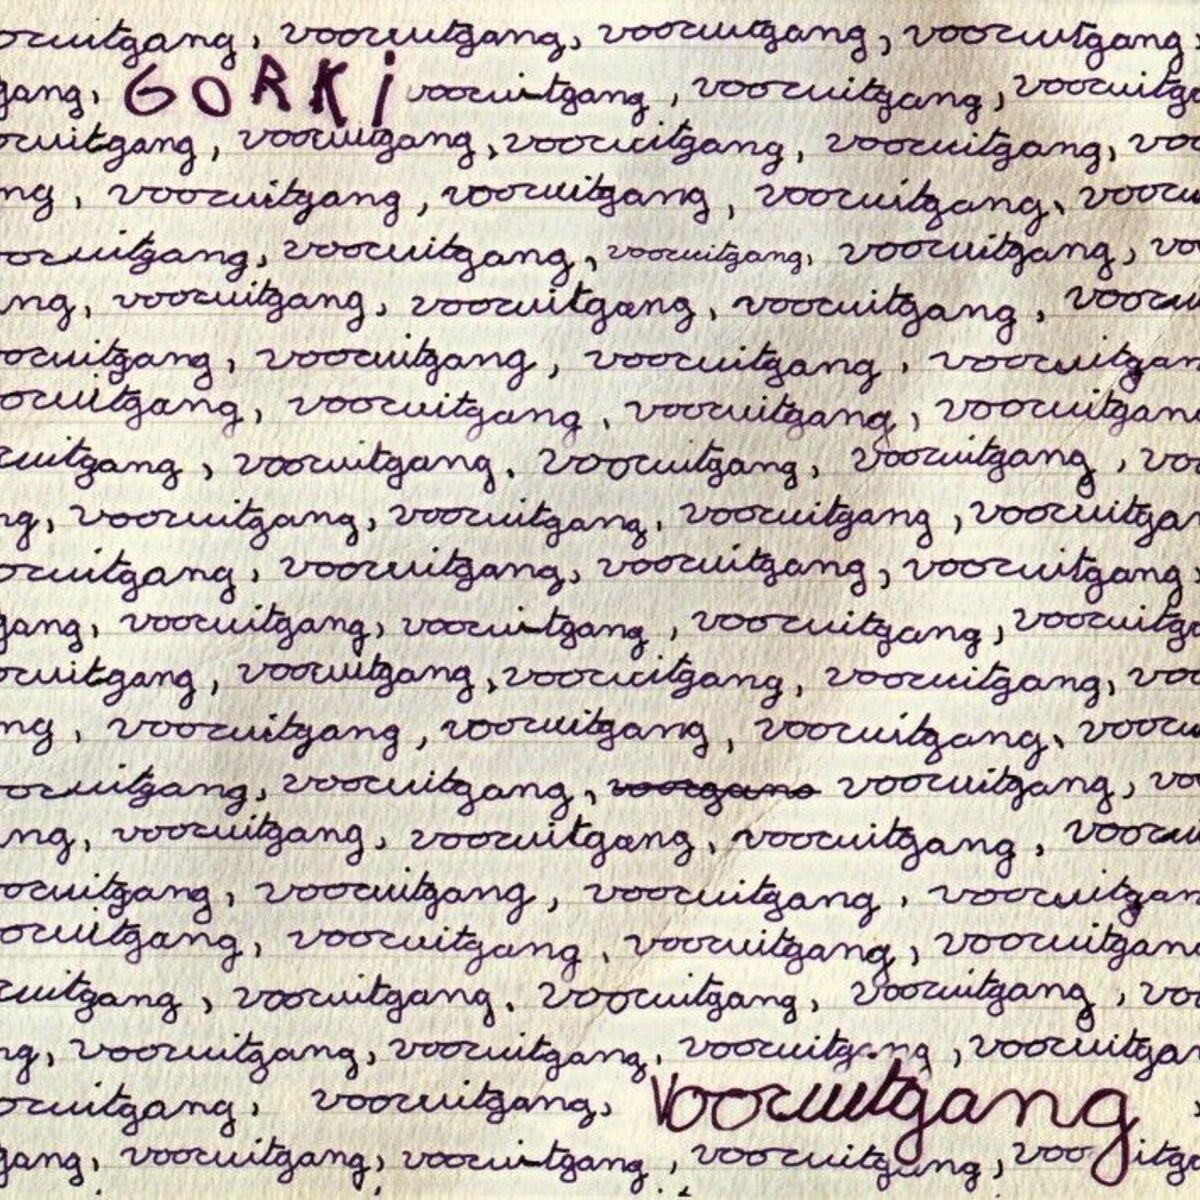 oruitgang, vooruitgang, vooruitgang, vooruitgang,
gang, GORKI vooruitgang, vooruitgang, vooruitga
oruitgang, vooruitgang, vooruitgang, vooruitgang, voo
ng, vooruitgang, vooruitgang, vooruitgang, vooru
ooruitgang, vooruitgang, vooruitgang, vooruitgang, vo
ang, vooruitgang, vooruitgang, vooruitgang, vooru
ooruitgang, vooruitgang, vooruitgang, vooruitgan
oruitgang, vooruitgang, vooruitgang, vooruitgan
ruitgang, vooruitgang, vooruitgang, vooruitgang, voo
ng, vooruitgang, vooruitgang, vooruitgang, vooruitga
oruitgang, vooruitgang, vooruitgang, vooruitgang,
gang, vooruitgang, vooruitgang, vooruitgang, vooruitga
oruitgang, vooruitgang, vooruitgang, vooruitgang, voo
ng, vooruitgang, vooruitgang, vooruitgang, vooru
ooruitgang, vooruitgang, voorgang vooruitgang, vo
ang, vooruitgang, vooruitgang, vooruitgang, vooru
ooruitgang, vooruitgang, vooruitgang, vooruitgan
oruitgang, vooruitgang, vooruitgang, vooruitgan
ruitgang, vooruitgang, vooruitgang, vooruitgang, voo
ng, vooruitgang, vooruitgang, vooruitgang, vooruitga
oruitgang, vooruitgang, Vooruitgang
gang, vooruitgang, vooruitgang, vooruitgang, voo itga